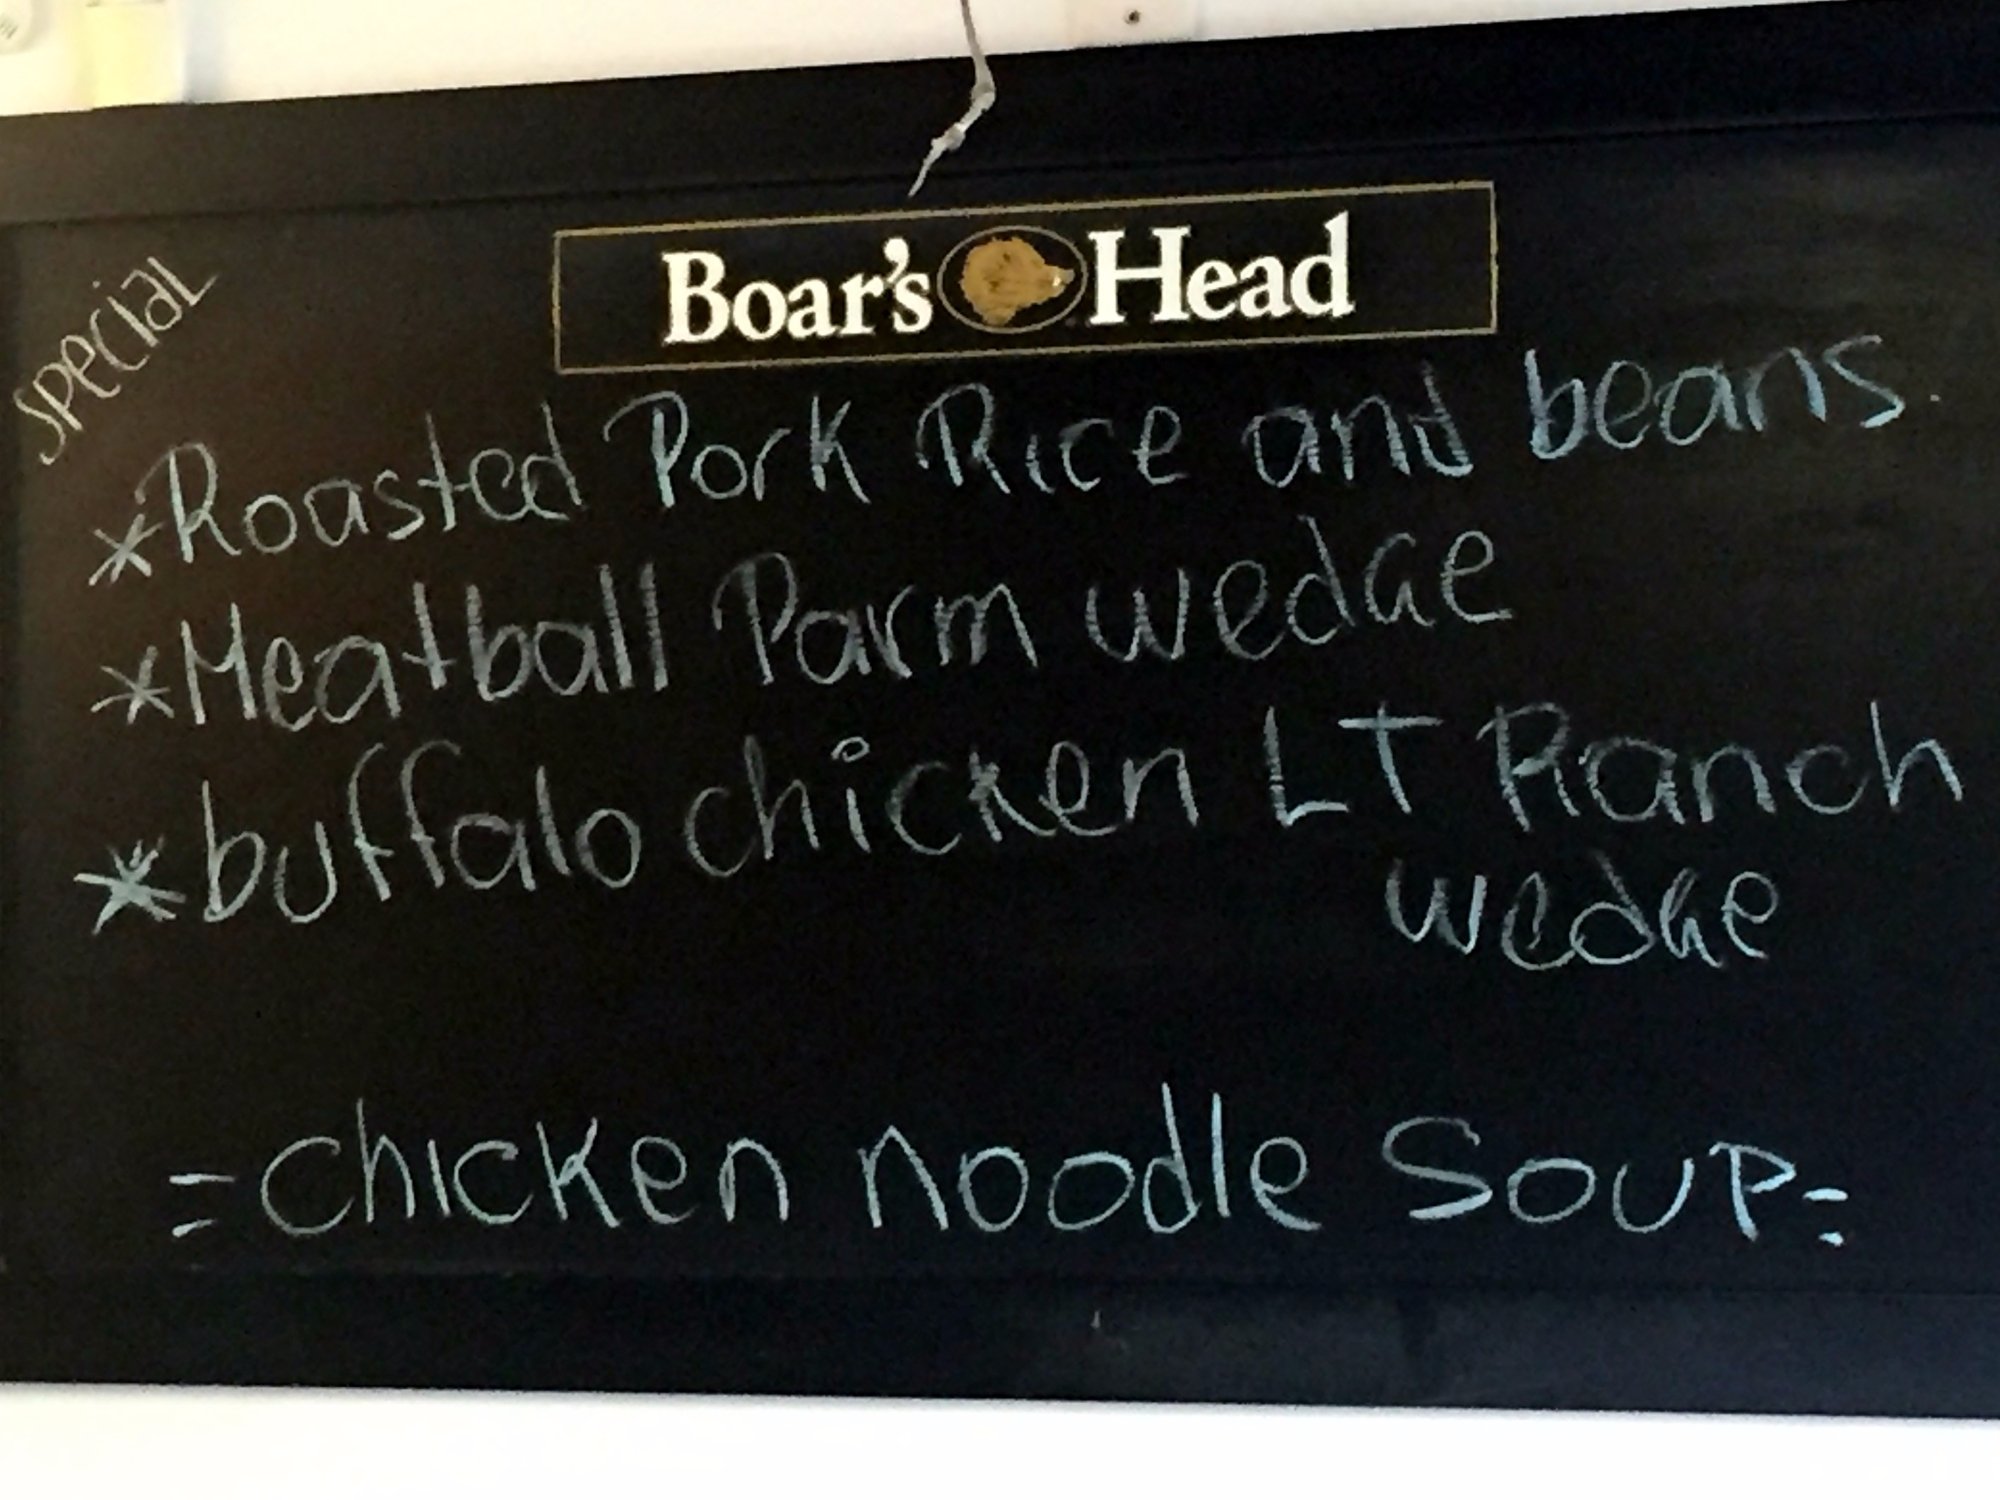 Boar's Head
special
*Roasted Pork Rice and beans.
*Meatball Parm wedge
*buffalo chicken LT Ranch
wedge
=chicken noodle Soup=